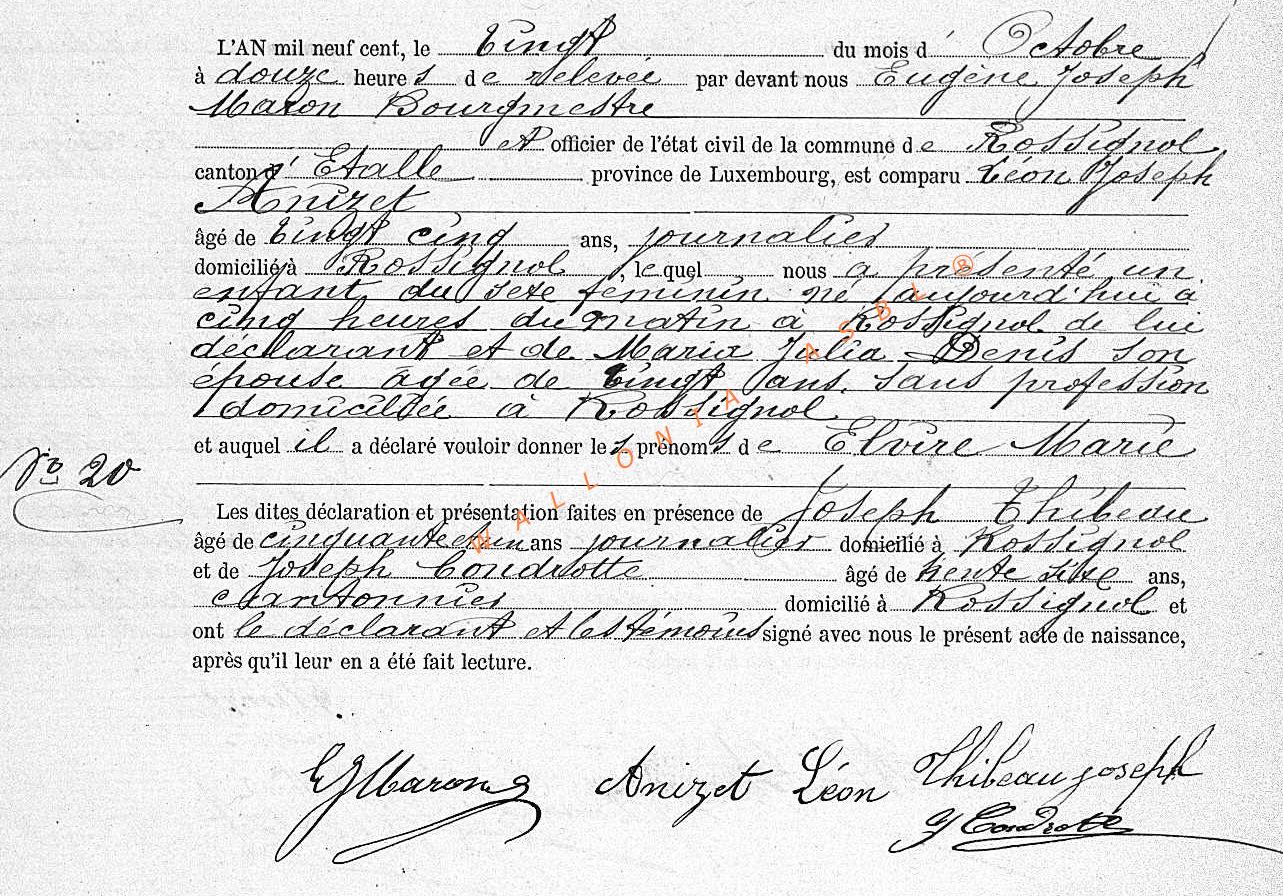 L'AN mil neuf cent, le Vingt du mois d' Octobre
à douze heures de relevée par devant nous Eugène Joseph
Maron Bourgmestre
et officier de l'état civil de la commune de Rossignol
canton d' Etalle province de Luxembourg, est comparu Léon Joseph
Anizet
âgé de vingt cinq ans, journalier
domicilié à Rossignol, lequel nous a présenté un
enfant du sexe féminin né aujourd'hui à
cinq heures du matin à Rossignol de lui
déclarant et de Maria Julia Denis son
épouse âgée de vingt ans sans profession
domiciliée à Rossignol
et auquel il a déclaré vouloir donner les prénoms de Elvire Marie
No 20
Les dites déclaration et présentation faites en présence de Joseph Thibeau
âgé de cinquante et un ans journalier domicilié à Rossignol
et de Joseph Condrotte âgé de trente sixe ans,
cantonnier domicilié à Rossignol et
ont le déclarant et les témoins signé avec nous le présent acte de naissance,
après qu'il leur en a été fait lecture.
EJMaron Anizet Léon Thibeau joseph
J Condrotte
WALLONIA ASBL ®